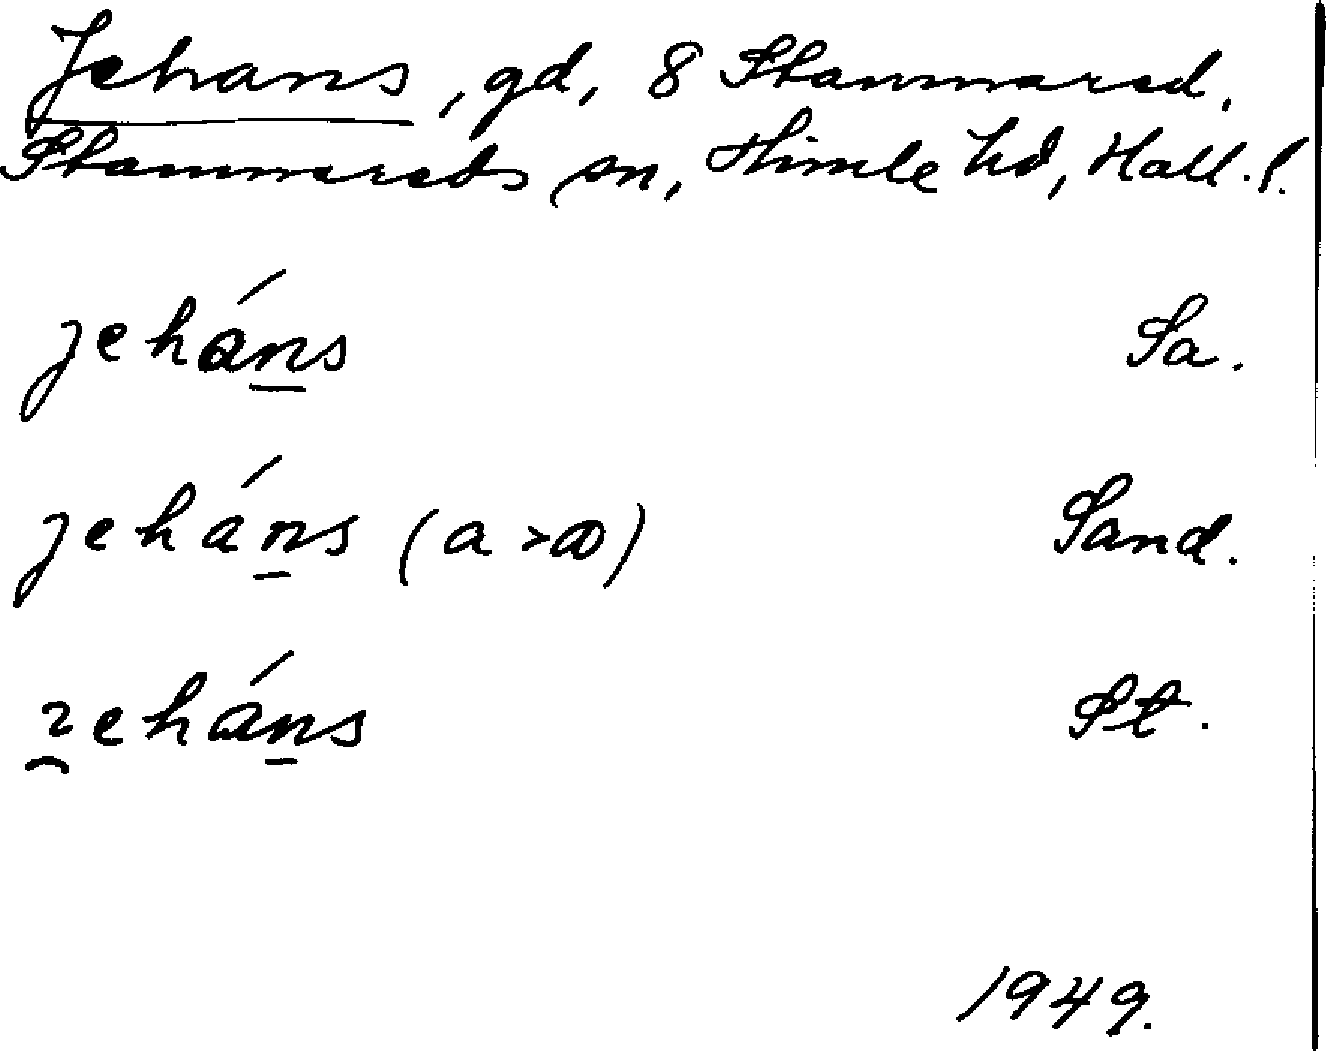 Jehans, gd, 8 Stammared,
Stammareds sn, Himle hd, Hall. l.
jeháns Sa.
jeháns (a > ɑ) Sand.
jeháns St.
1949.